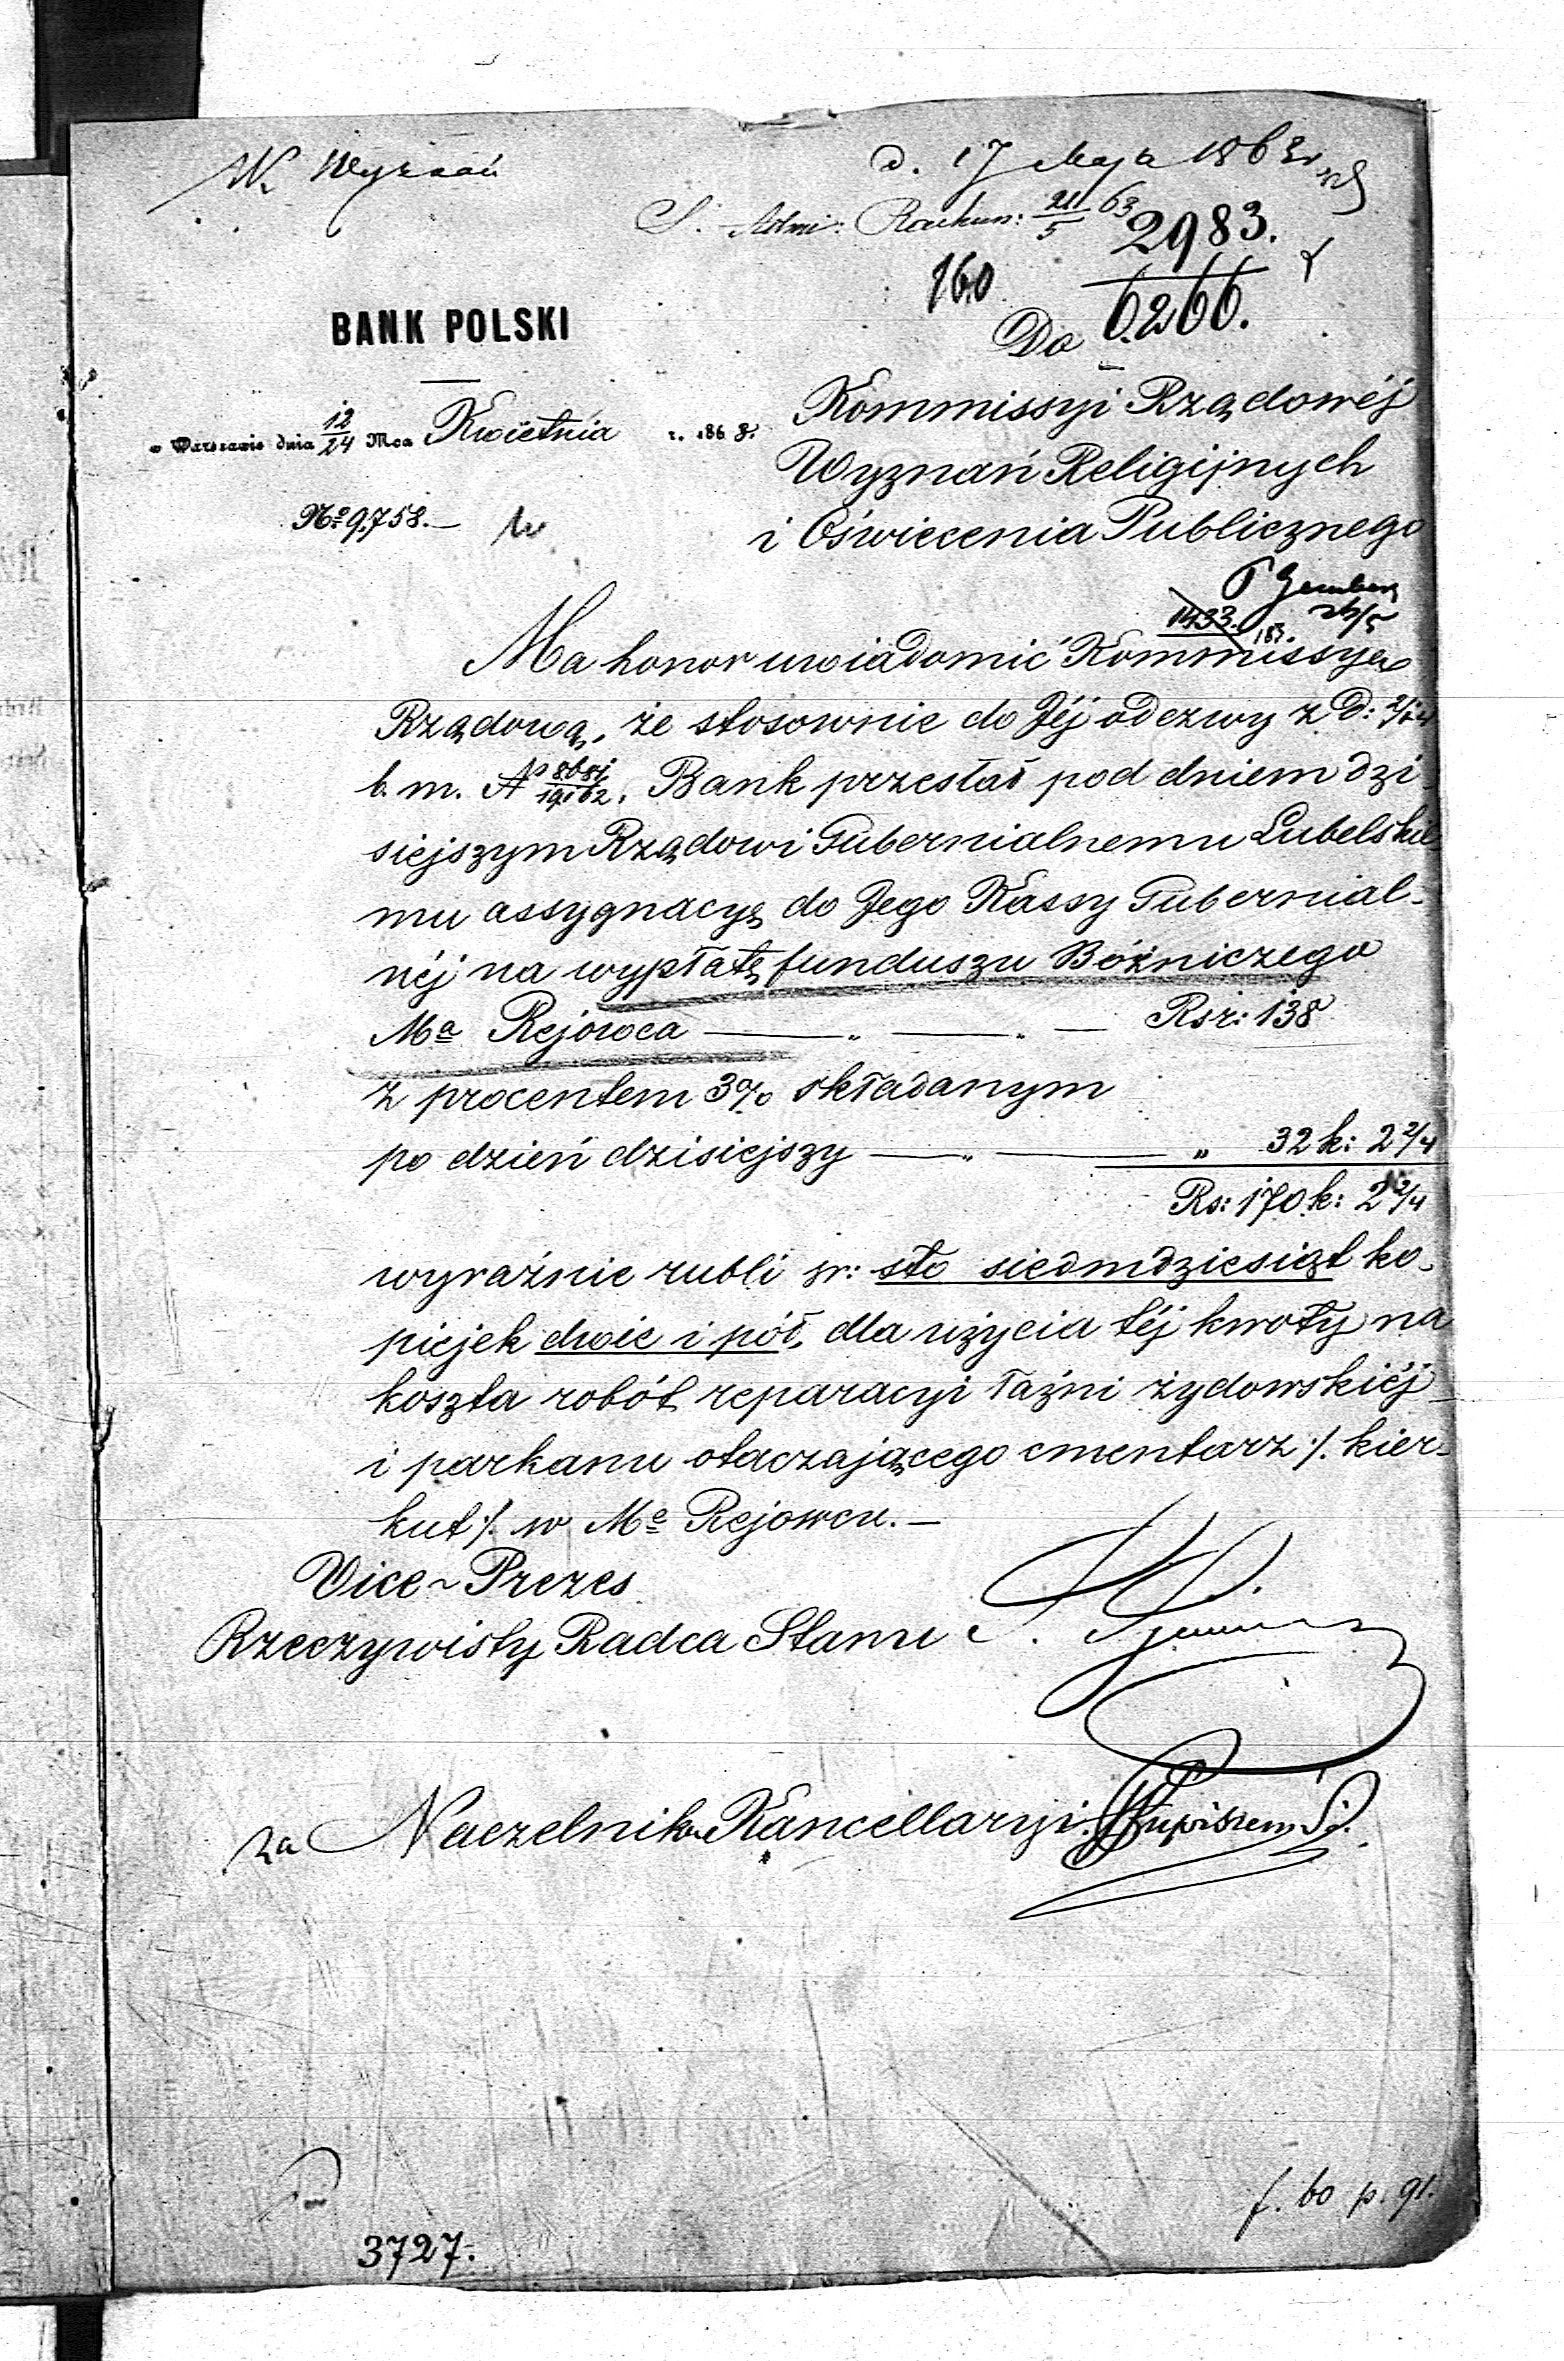 W. Wyznań
d. 17 Maja 1863 r.
S. Admi: Rachun: 21/5 63
2983.
160
6266.
BANK POLSKI
Do
w Warszawie dnia 12/24 Mca Kwietnia r. 1863.
Kommissyi Rządowéj
Wyznań Religijnych
No 9,758.—
i Oświecenia Publicznego
1433.
Ma honor uwiadomić Kommissyę
Rządową, że stosownie do Jéj odezwy z D:
b. m. No Bank przesłał pod dniem dzi-
siejszym Rządowi Gubernialnemu Lubelskie-
mu assygnacyę do Jego Kassy Gubernial-
néj na wypłatę funduszu Bóżniczego
Ma Rejowca — „ — „ — Rsr: 138
z procentem 3% składanym
po dzień dzisiejszy — „ — „ 32 k: 2 2/4
Rs: 170 k: 2 2/4
wyraźnie rubli sr: sto siedmdziesiąt ko-
piejek dwie i pół, dla użycia téj kwoty na
koszta robót reparacyi łaźni żydowskiéj
i parkanu otaczającego cmentarz /. kier-
kut /. w Me Rejowcu.—
Vice-Prezes
Rzeczywisty Radca Stanu
za Naczelnika Kancellaryi.
f. 60 p. 91.
3727.